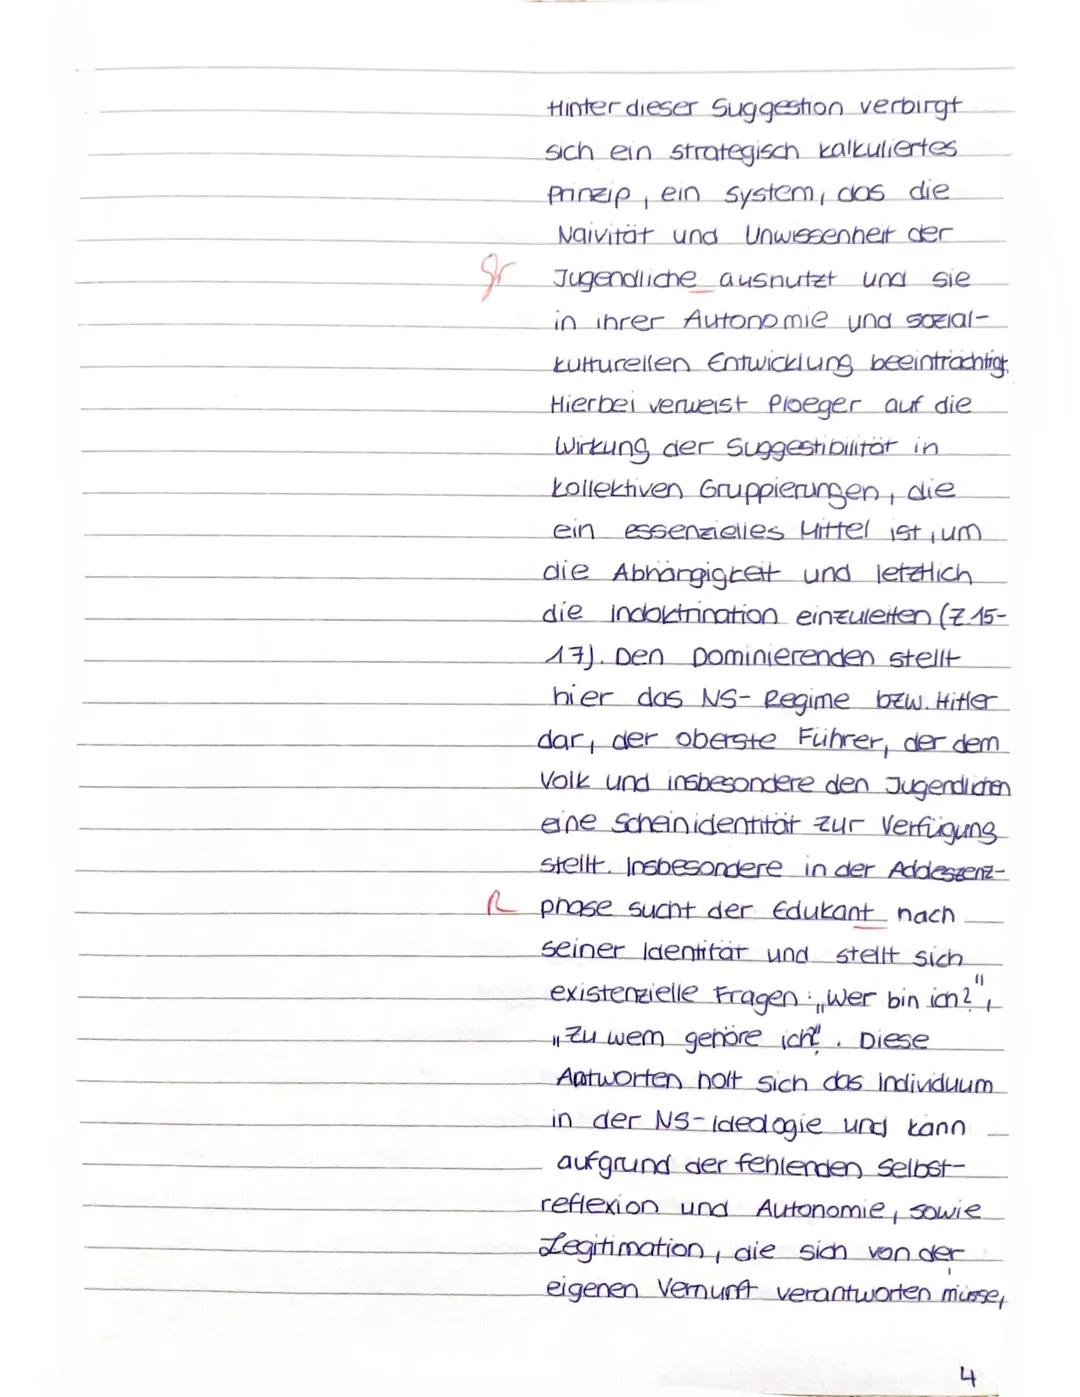 Hinter dieser Suggestion verbirgt
sich ein strategisch kalkuliertes
Prinzip, ein System, das die
Naivität und Unwissenheit der
gr Jugendliche ausnutzt und sie
in ihrer Autonomie und sozial-
kulturellen Entwicklung beeinträchtigt.
Hierbei verweist Ploeger auf die
Wirkung der Suggestibilität in
kollektiven Gruppierungen, die
ein essenzielles Mittel ist, um
die Abhängigkeit und letztlich
die Indoktrination einzuleiten (Z.15-
17). Den Dominierenden stellt
hier das NS-Regime bzw. Hitler
dar, der oberste Führer, der dem
Volk und insbesondere den Jugendlichen
eine Scheinidentität zur Verfügung
stellt. Insbesondere in der Addeszenz-
R phase sucht der Edukant nach
seiner Identität und stellt sich
existenzielle Fragen: „Wer bin ich?",
„Zu wem gehöre ich?". Diese
Antworten holt sich das Individuum
in der NS-Ideologie und kann
aufgrund der fehlenden Selbst-
reflexion und Autonomie, sowie
Legitimation, die sich von der
eigenen Vernunft verantworten müsse,
4